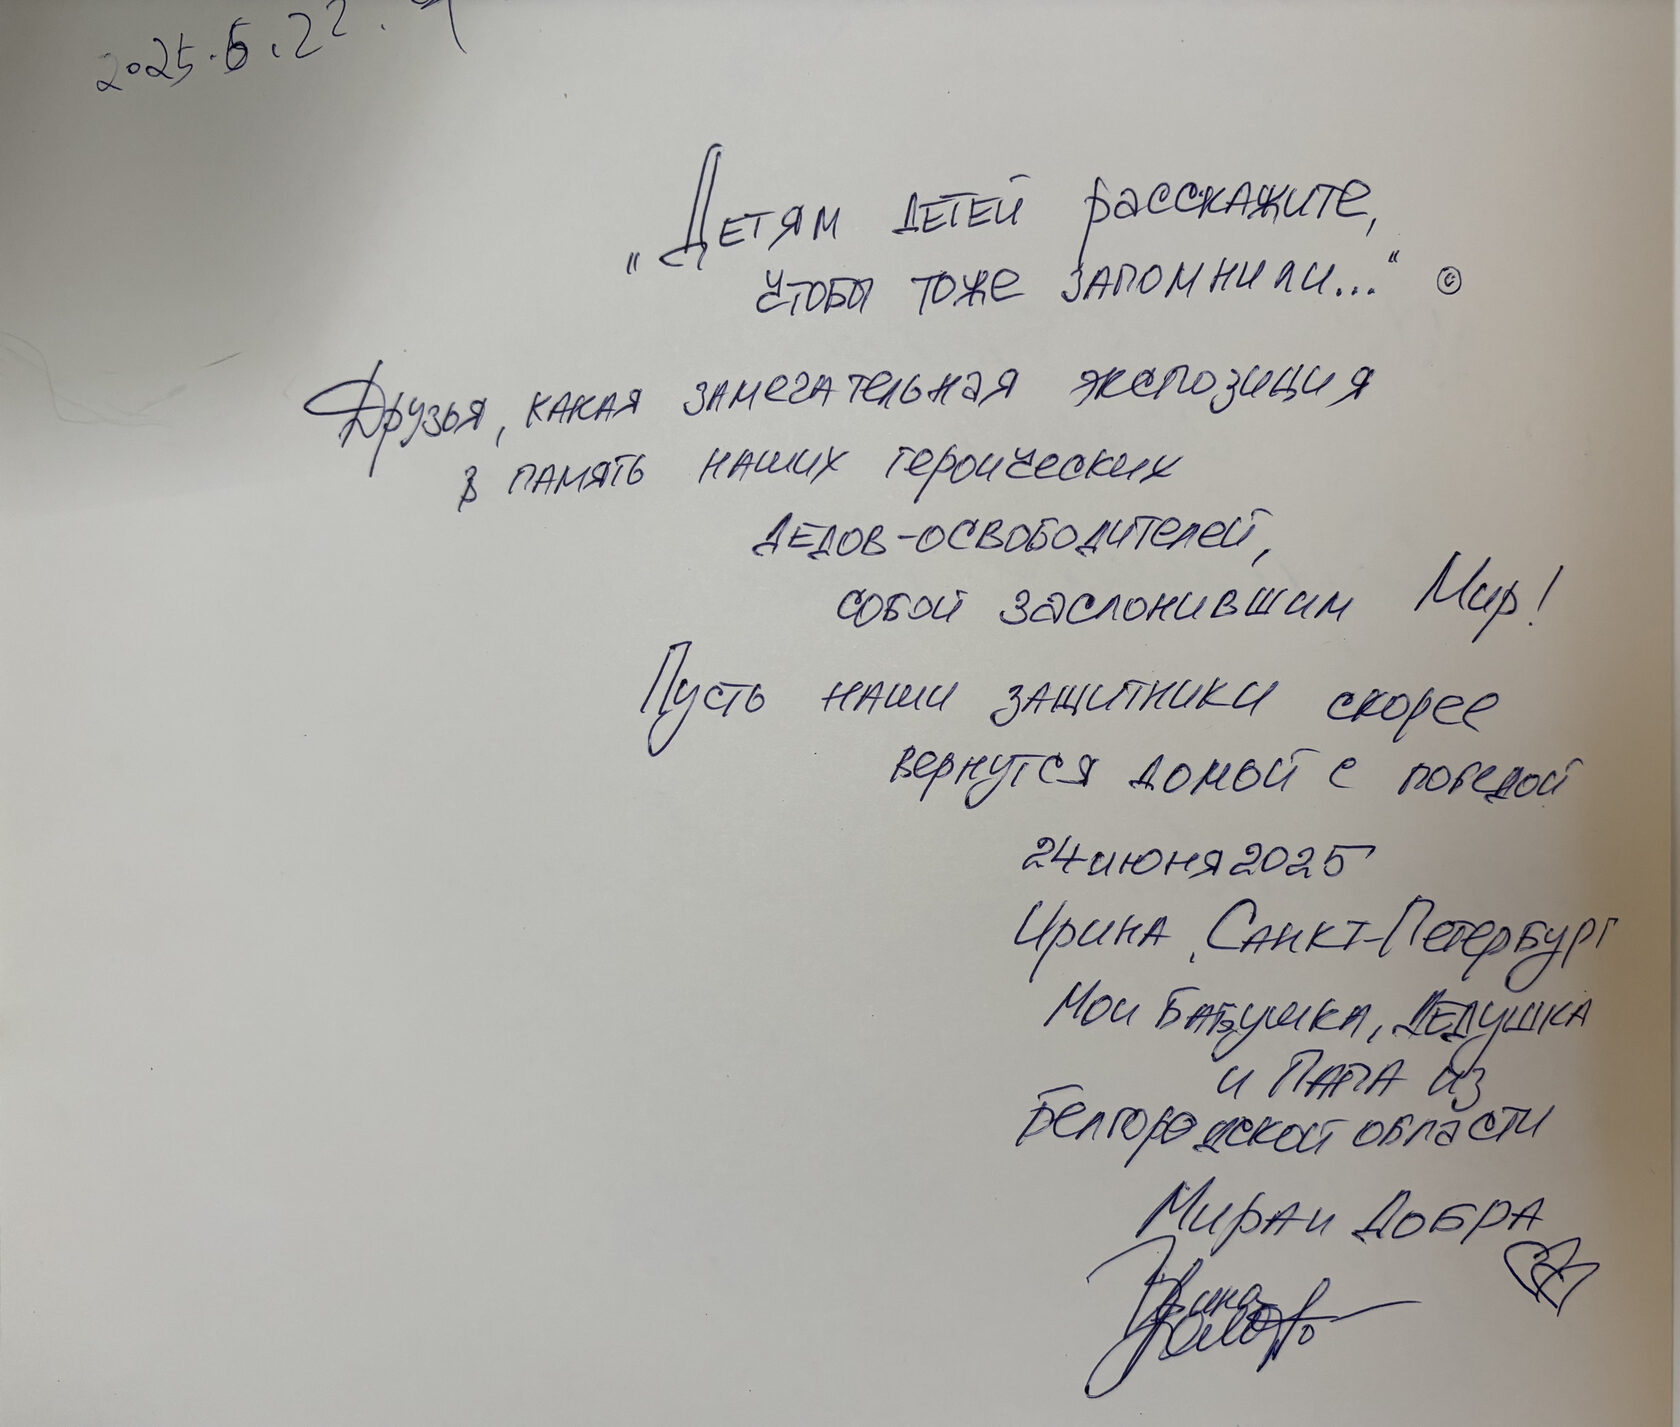 2025.6.22.
„Детям детей расскажите,
чтобы тоже запомнили..." ©
Друзья, какая замечательная экспозиция
в память наших героических
дедов-освободителей,
собой заслонившим Мир!
Пусть наши защитники скорее
вернутся домой с победой
24 июня 2025
Ирина, Санкт-Петербург
Мои Бабушка, Дедушка
и Папа из
Белгородской области
Мира и Добра
Ирина